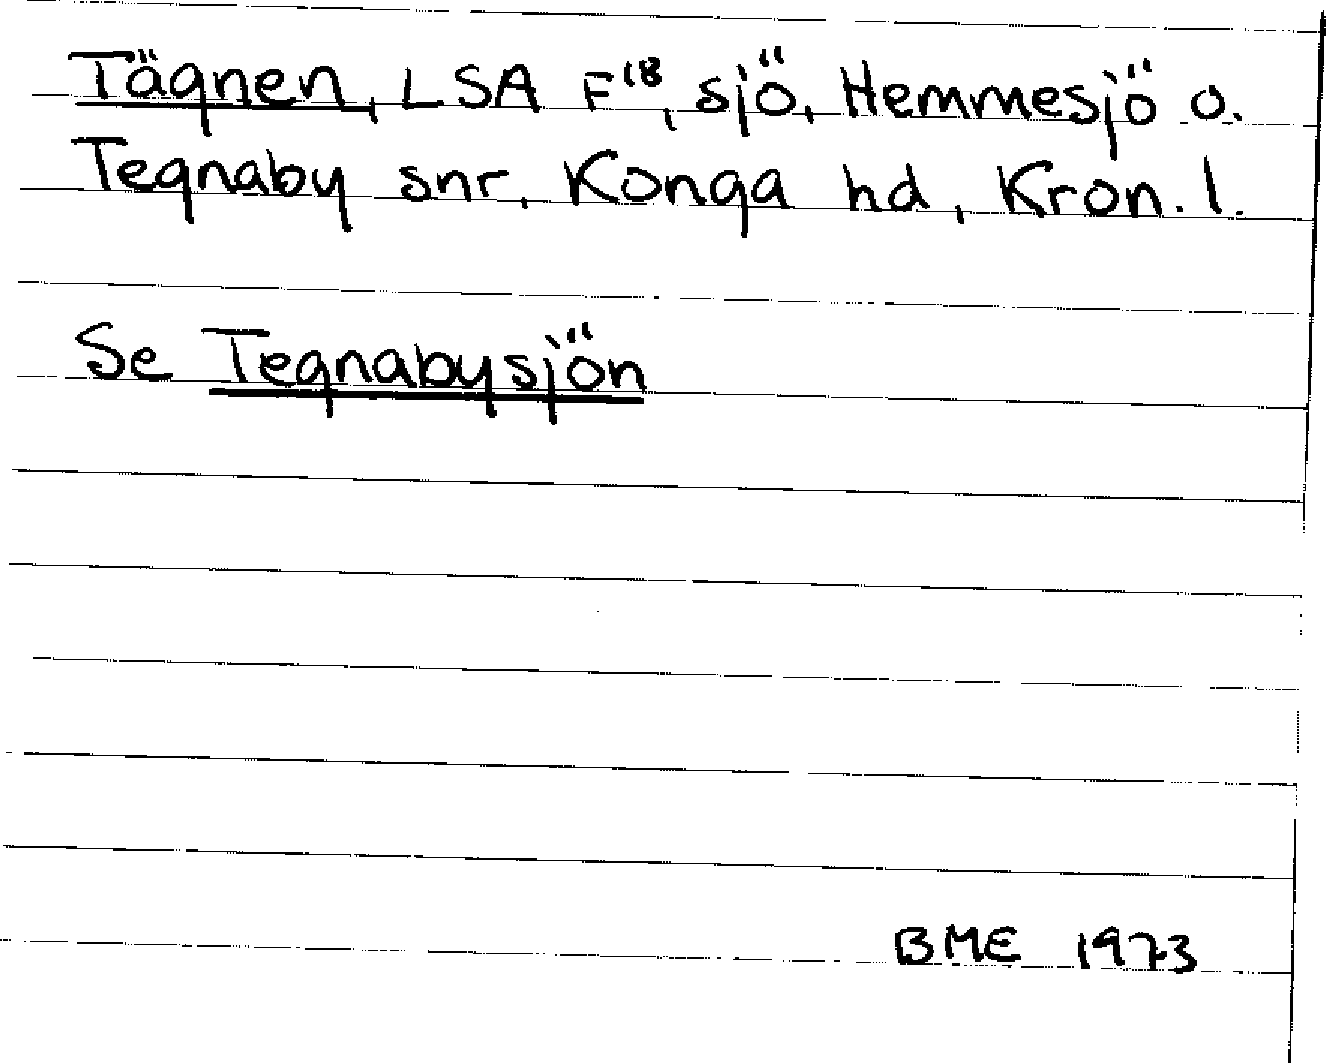 Tägnen, LSA F¹⁸, sjö, Hemmesjö o.
Tegnaby snr, Konga hd, Kron. l.
Se Tegnabysjön
BME 1973